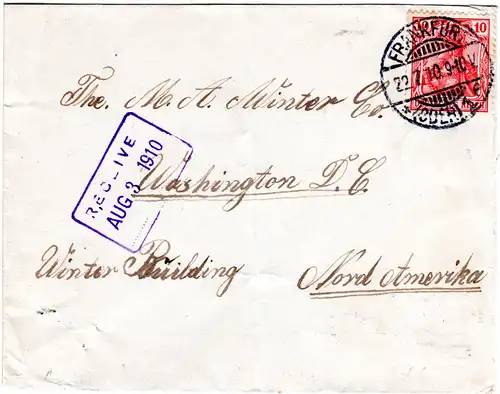 10
FRANKFUR
22.7.10.9-10V.
(ODER) 1
The. M. A. Winter Co.
RECEIVE
AUG 3 1910
Washington D. C.
Winter Building
Nord Amerika